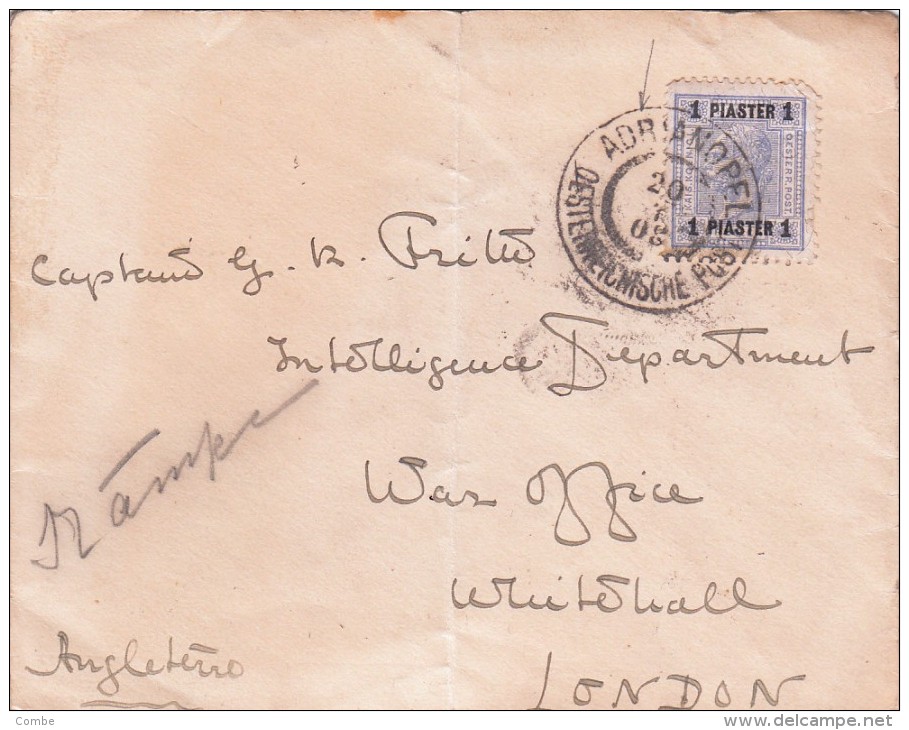 1 PIASTER 1
KAIS. KÖNIGL.
OESTERR. POST.
1 PIASTER 1
ADRIANOPEL
20
OESTERREICHISCHE POST
Captain G. K.
Intelligence Department
War Office
Whitehall
LONDON
Angleterre
Combe
www.delcampe.net